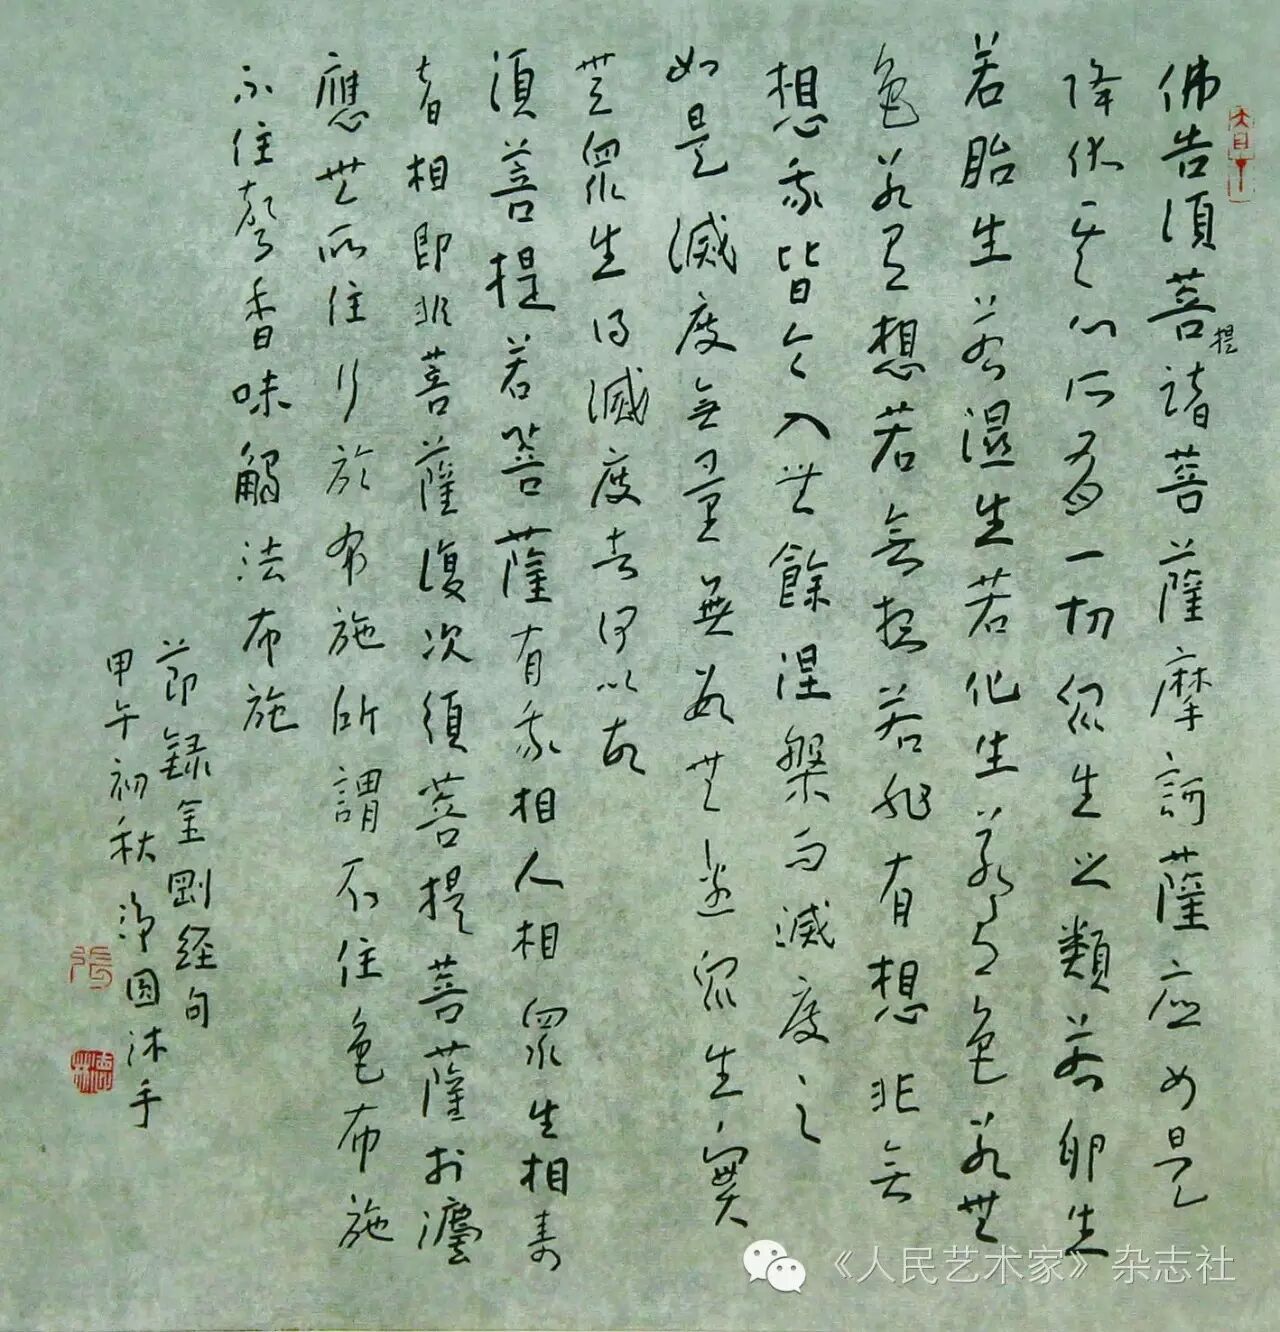 佛告須菩提諸菩薩摩訶薩应如是
降伏其心所有一切眾生之類若卵生
若胎生若濕生若化生若有色若無
色若有想若無想若非有想非無
想我皆令入無餘涅槃而滅度之
如是滅度無量無數無邊眾生實
無眾生得滅度者何以故
須菩提若菩薩有我相人相眾生相壽
者相即非菩薩復次須菩提菩薩於灋
應無所住行於布施所謂不住色布施
不住聲香味觸法布施
節録金剛经句
甲午初秋淨圓沐手
張
《人民艺术家》杂志社